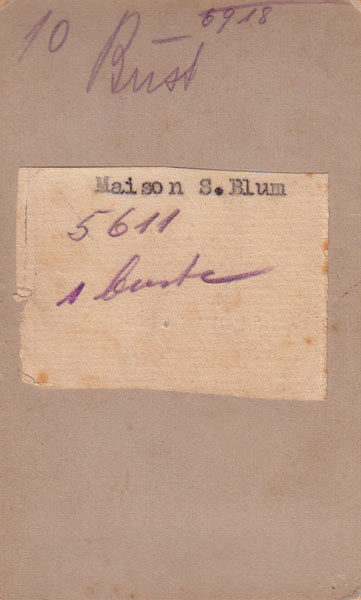 10 Büst 5918
Maison S.Blum
5611
1 buste